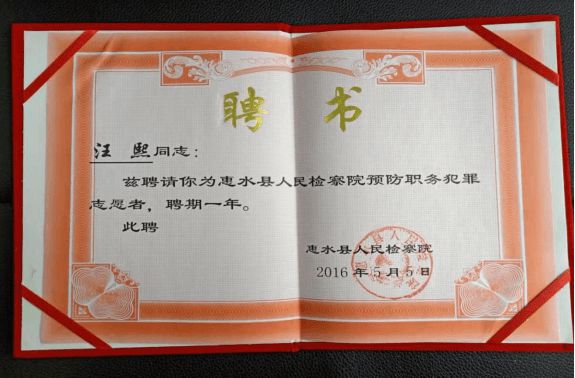 聘 书
汪 熙 同志：
兹聘请你为惠水县人民检察院预防职务犯罪
志愿者，聘期一年。
此聘
惠水县人民检察院
2016年5月5日